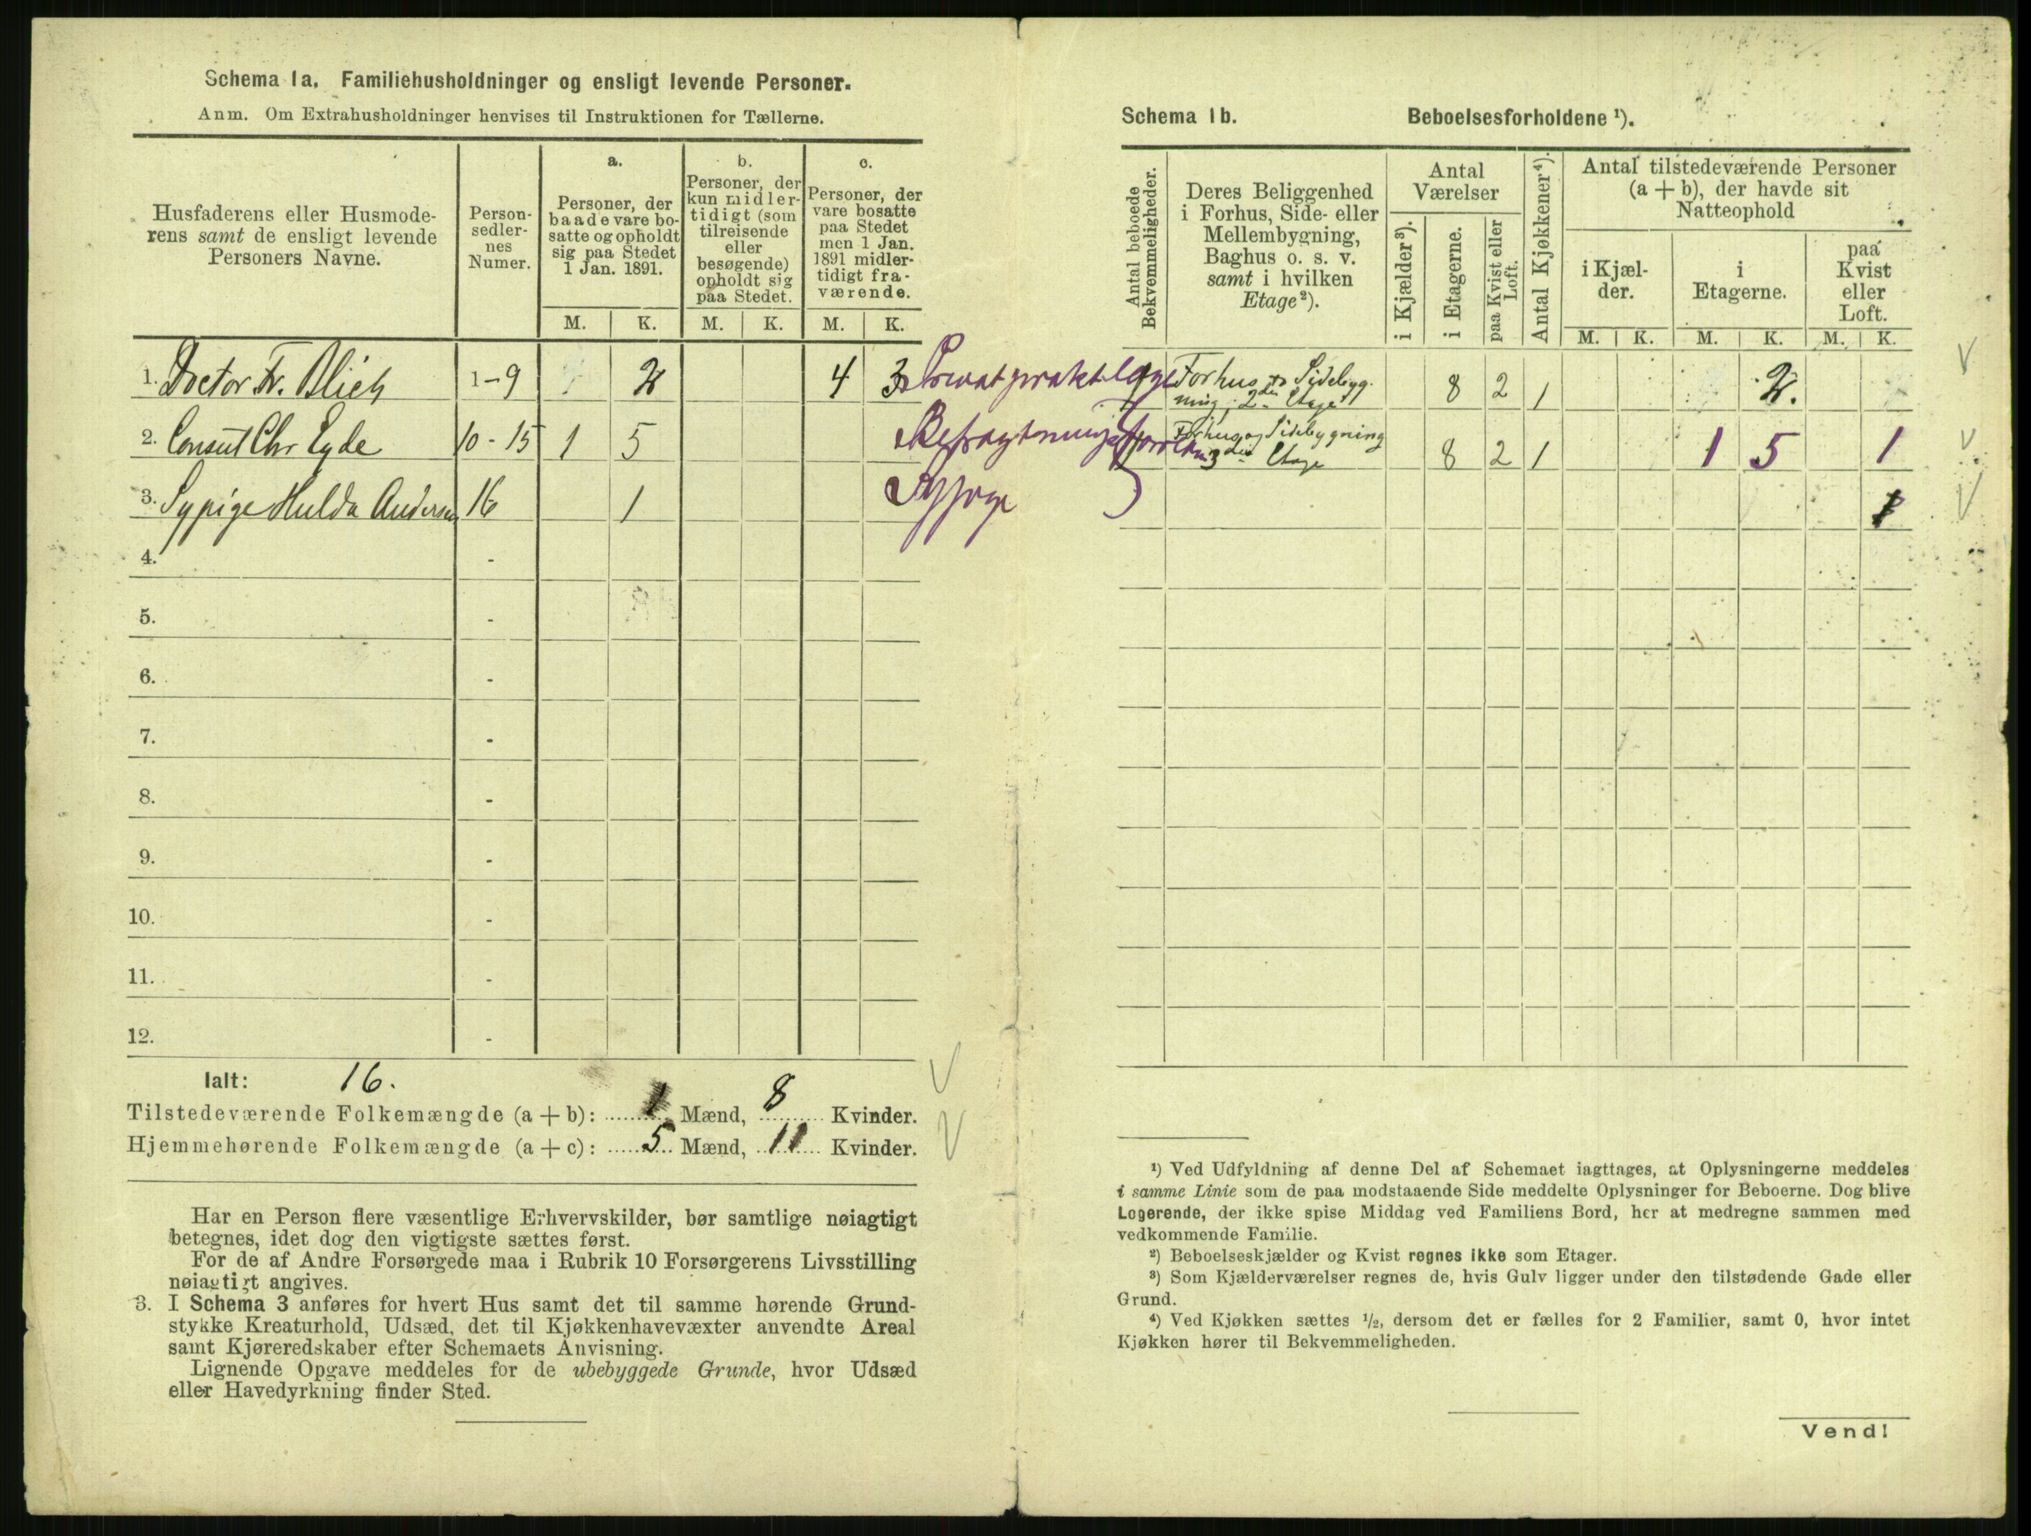 Schema 1a. Familiehusholdninger og ensligt levende Personer.
Anm. Om Extrahusholdninger henvises til Instruktionen for Tællerne.
Husfaderens eller Husmode-
rens samt de ensligt levende
Personers Navne.
Person-
sedler-
nes
Numer.
a.
Personer, der
baade vare bo-
satte og opholdt
sig paa Stedet
1 Jan. 1891.
b.
Personer, der
kun midler-
tidigt (som
tilreisende
eller
besøgende)
opholdt sig
paa Stedet.
c.
Personer, der
vare bosatte
paa Stedet
men 1 Jan.
1891 midler-
tidigt fra-
værende.
M. K. M. K. M. K.
1. Doctor Fr. Blich 1-9 2 4 3 Privat prakt. læge
2. Consul Chr Eyde 10-15 1 5
3. Sypige Hulda Andersen 16 1
4. -
5. -
6. -
7. -
8. -
9. -
10. -
11. -
12. -
Ialt: 16.
Tilstedeværende Folkemængde (a + b): 1 Mænd, 8 Kvinder.
Hjemmehørende Folkemængde (a + c): 5 Mænd, 11 Kvinder.
Har en Person flere væsentlige Erhvervskilder, bør samtlige nøiagtigt
betegnes, idet dog den vigtigste sættes først.
For de af Andre Forsørgede maa i Rubrik 10 Forsørgerens Livsstilling
nøiagtigt angives.
3. I Schema 3 anføres for hvert Hus samt det til samme hørende Grund-
stykke Kreaturhold, Udsæd, det til Kjøkkenhavevæxter anvendte Areal
samt Kjøreredskaber efter Schemaets Anvisning.
Lignende Opgave meddeles for de ubebyggede Grunde, hvor Udsæd
eller Havedyrkning finder Sted.
Schema 1b. Beboelsesforholdene ¹).
Antal beboede
Bekvemmeligheder.
Deres Beliggenhed
i Forhus, Side- eller
Mellembygning,
Baghus o. s. v.
samt i hvilken
Etage²).
Antal
Værelser
i Kjælder³).
i Etagerne.
paa Kvist eller
Loft.
Antal Kjøkkener⁴).
Antal tilstedeværende Personer
(a + b), der havde sit
Natteophold
i Kjæl-
der.
i
Etagerne.
paa
Kvist
eller
Loft.
M. K. M. K. M. K.
1 Forhus & Sidebyg-
ning, 2den Etage 8 2 1 2.
Forhus og Sidebygning
3die Etage 8 2 1 1 5 1
1
¹) Ved Udfyldning af denne Del af Schemaet iagttages, at Oplysningerne meddeles
i samme Linie som de paa modstaaende Side meddelte Oplysninger for Beboerne. Dog blive
Logerende, der ikke spise Middag ved Familiens Bord, her at medregne sammen med
vedkommende Familie.
²) Beboelseskjælder og Kvist regnes ikke som Etager.
³) Som Kjælderværelser regnes de, hvis Gulv ligger under den tilstødende Gade eller
Grund.
⁴) Ved Kjøkken sættes ½, dersom det er fælles for 2 Familier, samt 0, hvor intet
Kjøkken hører til Bekvemmeligheden.
Vend!